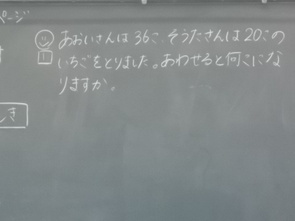 ページ
1
あおいさんは36こ、そうたさんは20この
いちごをとりました。あわせると何こにな
りますか。
しき